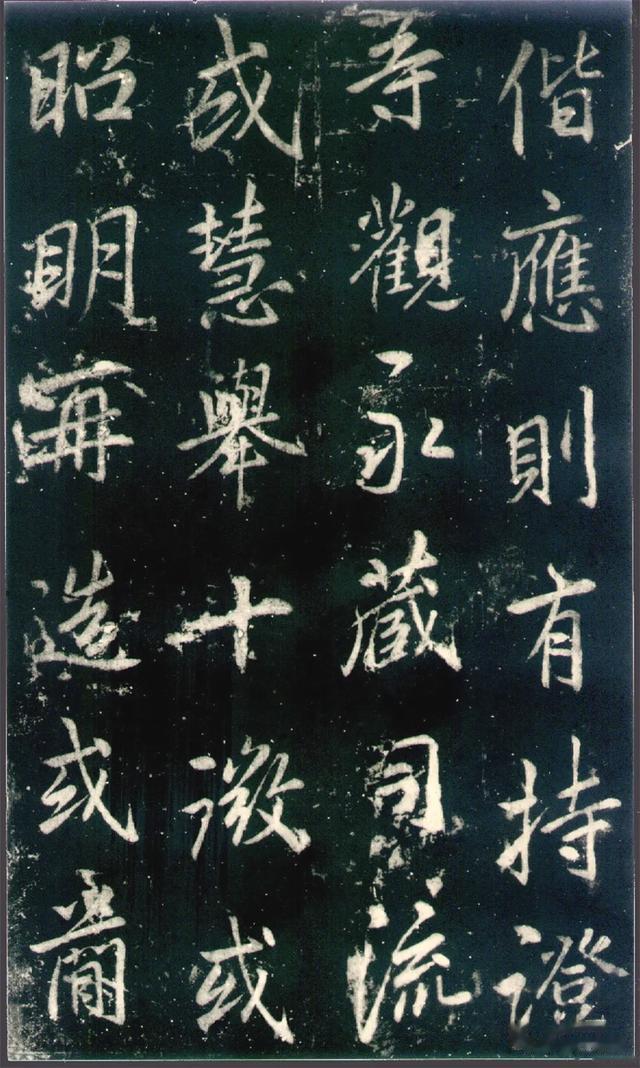 偕應則有持證
寺觀永藏司流
或慧舉十徵或
昭明再造或